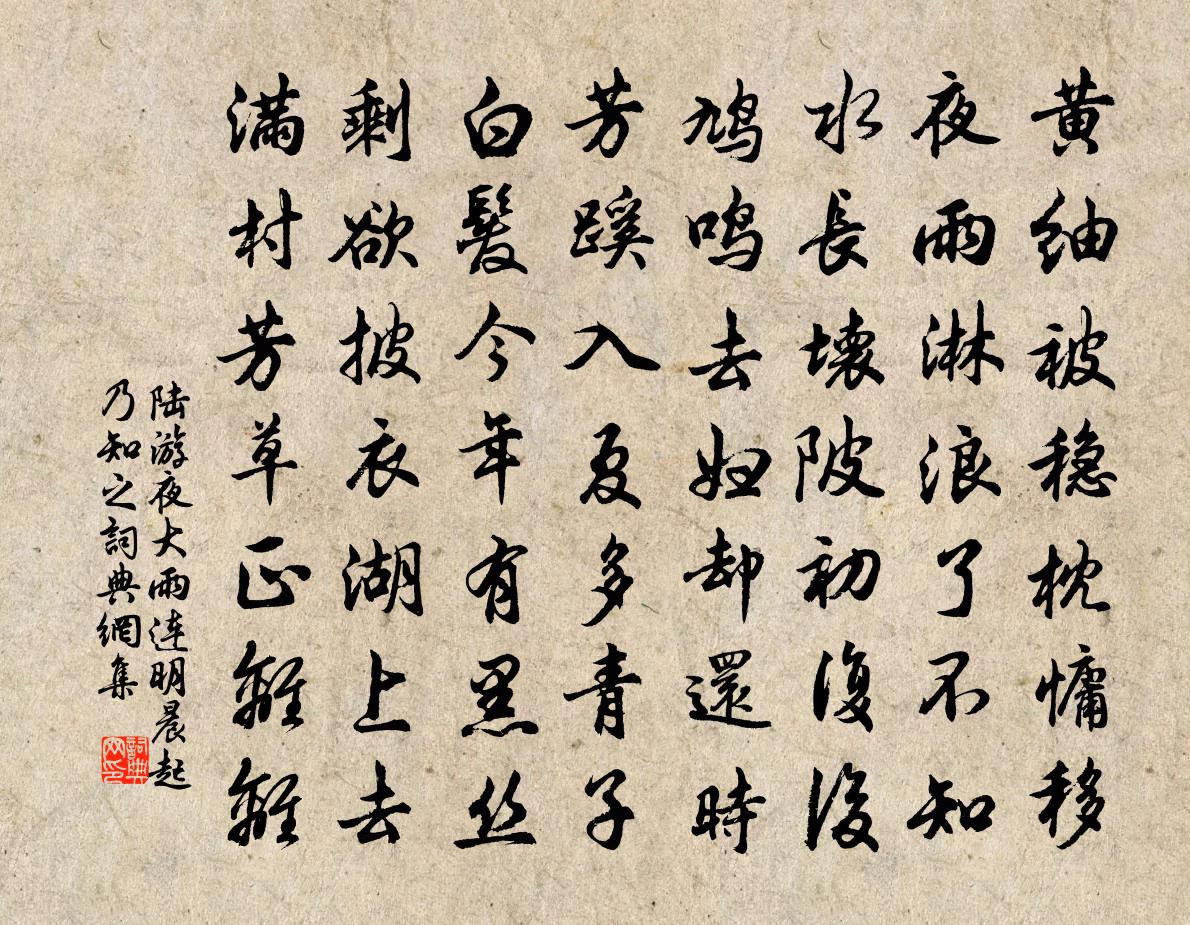 黄紬被稳枕慵移
夜雨淋浪了不知
水長壞陂初復後
鳩鳴去妇却還時
芳蹊入夏多青子
白髮今年有黑丝
剩欲披衣湖上去
满村芳草正離離
陆游夜大雨连明晨起
乃知之詞典網集
詞典
网印